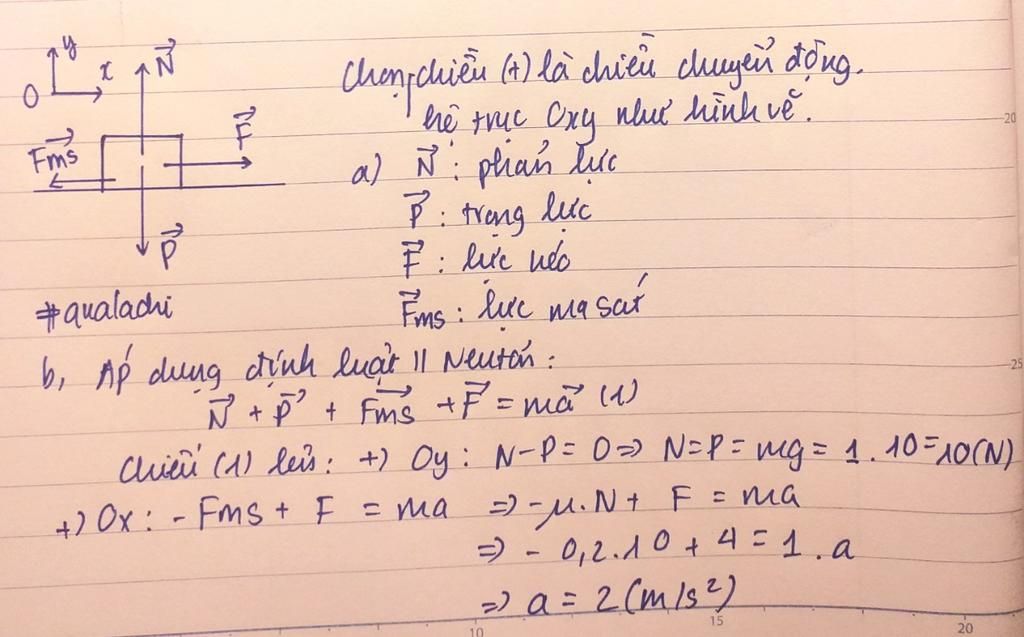 y
x
O
N⃗
F⃗
F⃗ms
P⃗
Chọn chiều (+) là chiều chuyển động.
hệ trục Oxy như hình vẽ.
a) N⃗ : phản lực
P⃗ : trọng lực
F⃗ : lực kéo
F⃗ms : lực ma sát
#qualachi
b, Áp dụng định luật II Neutơn :
N⃗ + P⃗ + F⃗ms + F⃗ = ma⃗ (1)
Chiếu (1) lên : +) Oy : N - P = 0 => N = P = mg = 1 . 10 = 10 (N)
+) Ox : - Fms + F = ma => - μ.N + F = ma
=> - 0,2 . 10 + 4 = 1 . a
=> a = 2 (m/s²)
20
25
10
15
20